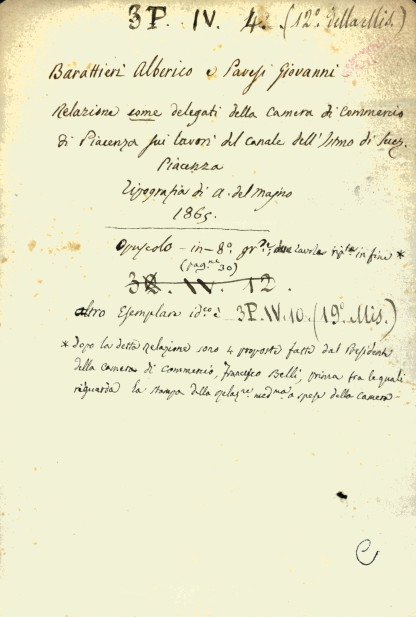 3P. IV. 4. (12º. della Mis.)
Barattieri Alberico e Pavesi Giovanni
Relazione come delegati della Camera di Commercio
di Piacenza sui lavori del canale dell'Istmo di Suez.
Piacenza
Tipografia di A. del Maino
1865.
opuscolo - in - 8º. gr.e, due tavole in fine *
(pag.ne 30)
IV. 12.
altro Esemplare id.co è 3P. IV. 10. (19º. Mis.)
* Dopo la detta Relazione sono 4 proposte fatte dal Presidente
della camera di commercio, Francesco Belli, prima fra le quali
riguarda la stampa della Relaz.ne med.ma a spese della Camera -